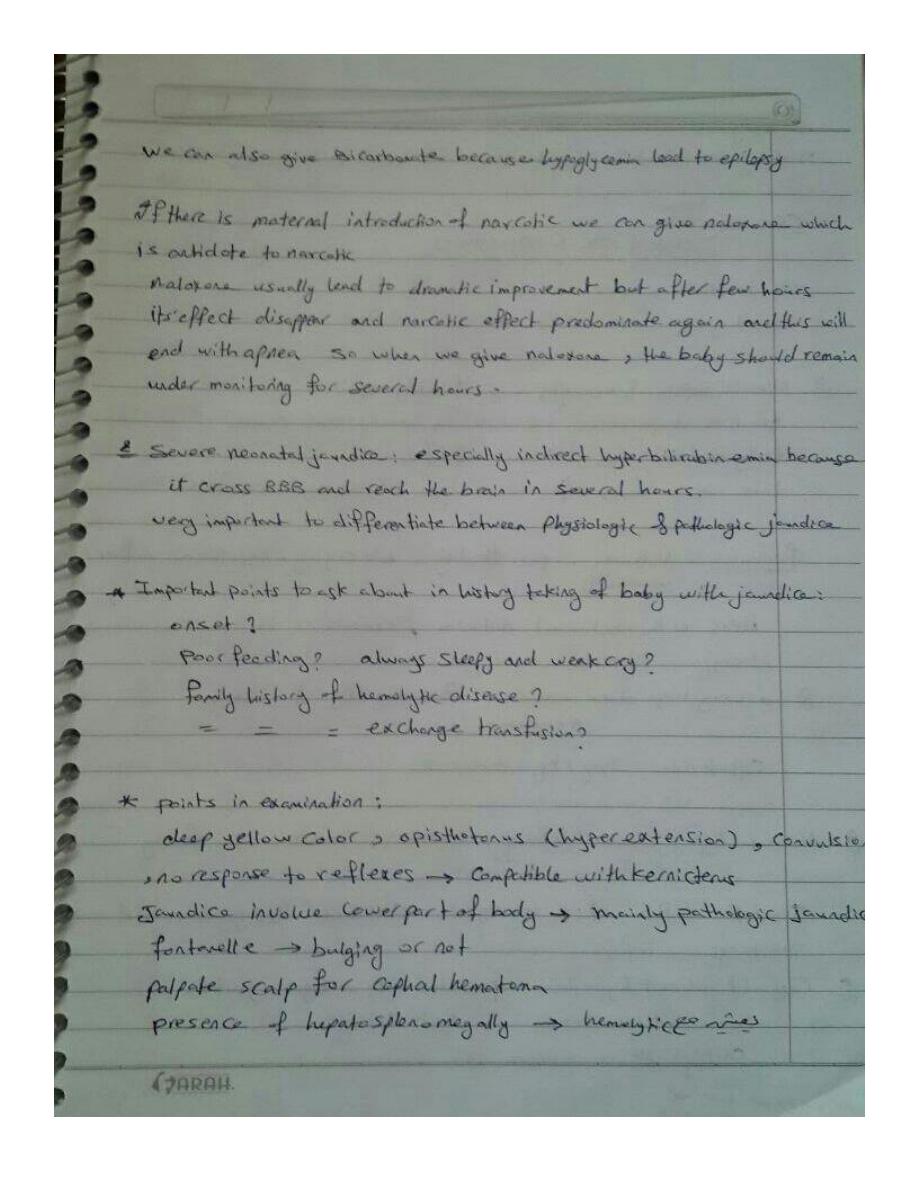 we can also give Bicarbonate because hypoglycemia lead to epilepsy
If there is maternal introduction of narcotic we can give naloxone which
is antidote to narcotic
naloxone usually lead to dramatic improvement but after few hours
its effect disappear and narcotic effect predominate again and this will
end with apnea so when we give naloxone, the baby should remain
under monitoring for several hours.
Severe neonatal jaundice: especially indirect hyperbilirubinemia because
it cross BBB and reach the brain in several hours.
very important to differentiate between physiologic & pathologic jaundice
* Important points to ask about in history taking of baby with jaundice:
onset?
Poor feeding? always sleepy and weak cry?
family history of hemolytic disease?
= = = exchange transfusion?
* points in examination:
deep yellow color, opisthotonus (hyperextension), Convulsio
, no response to reflexes → Compatible with kernicterus
Jaundice involve lower part of body → mainly pathologic jaundic
fontanelle → bulging or not
palpate scalp for cephal hematoma
presence of hepatosplenomegally → hemolytic مع
SARAH.